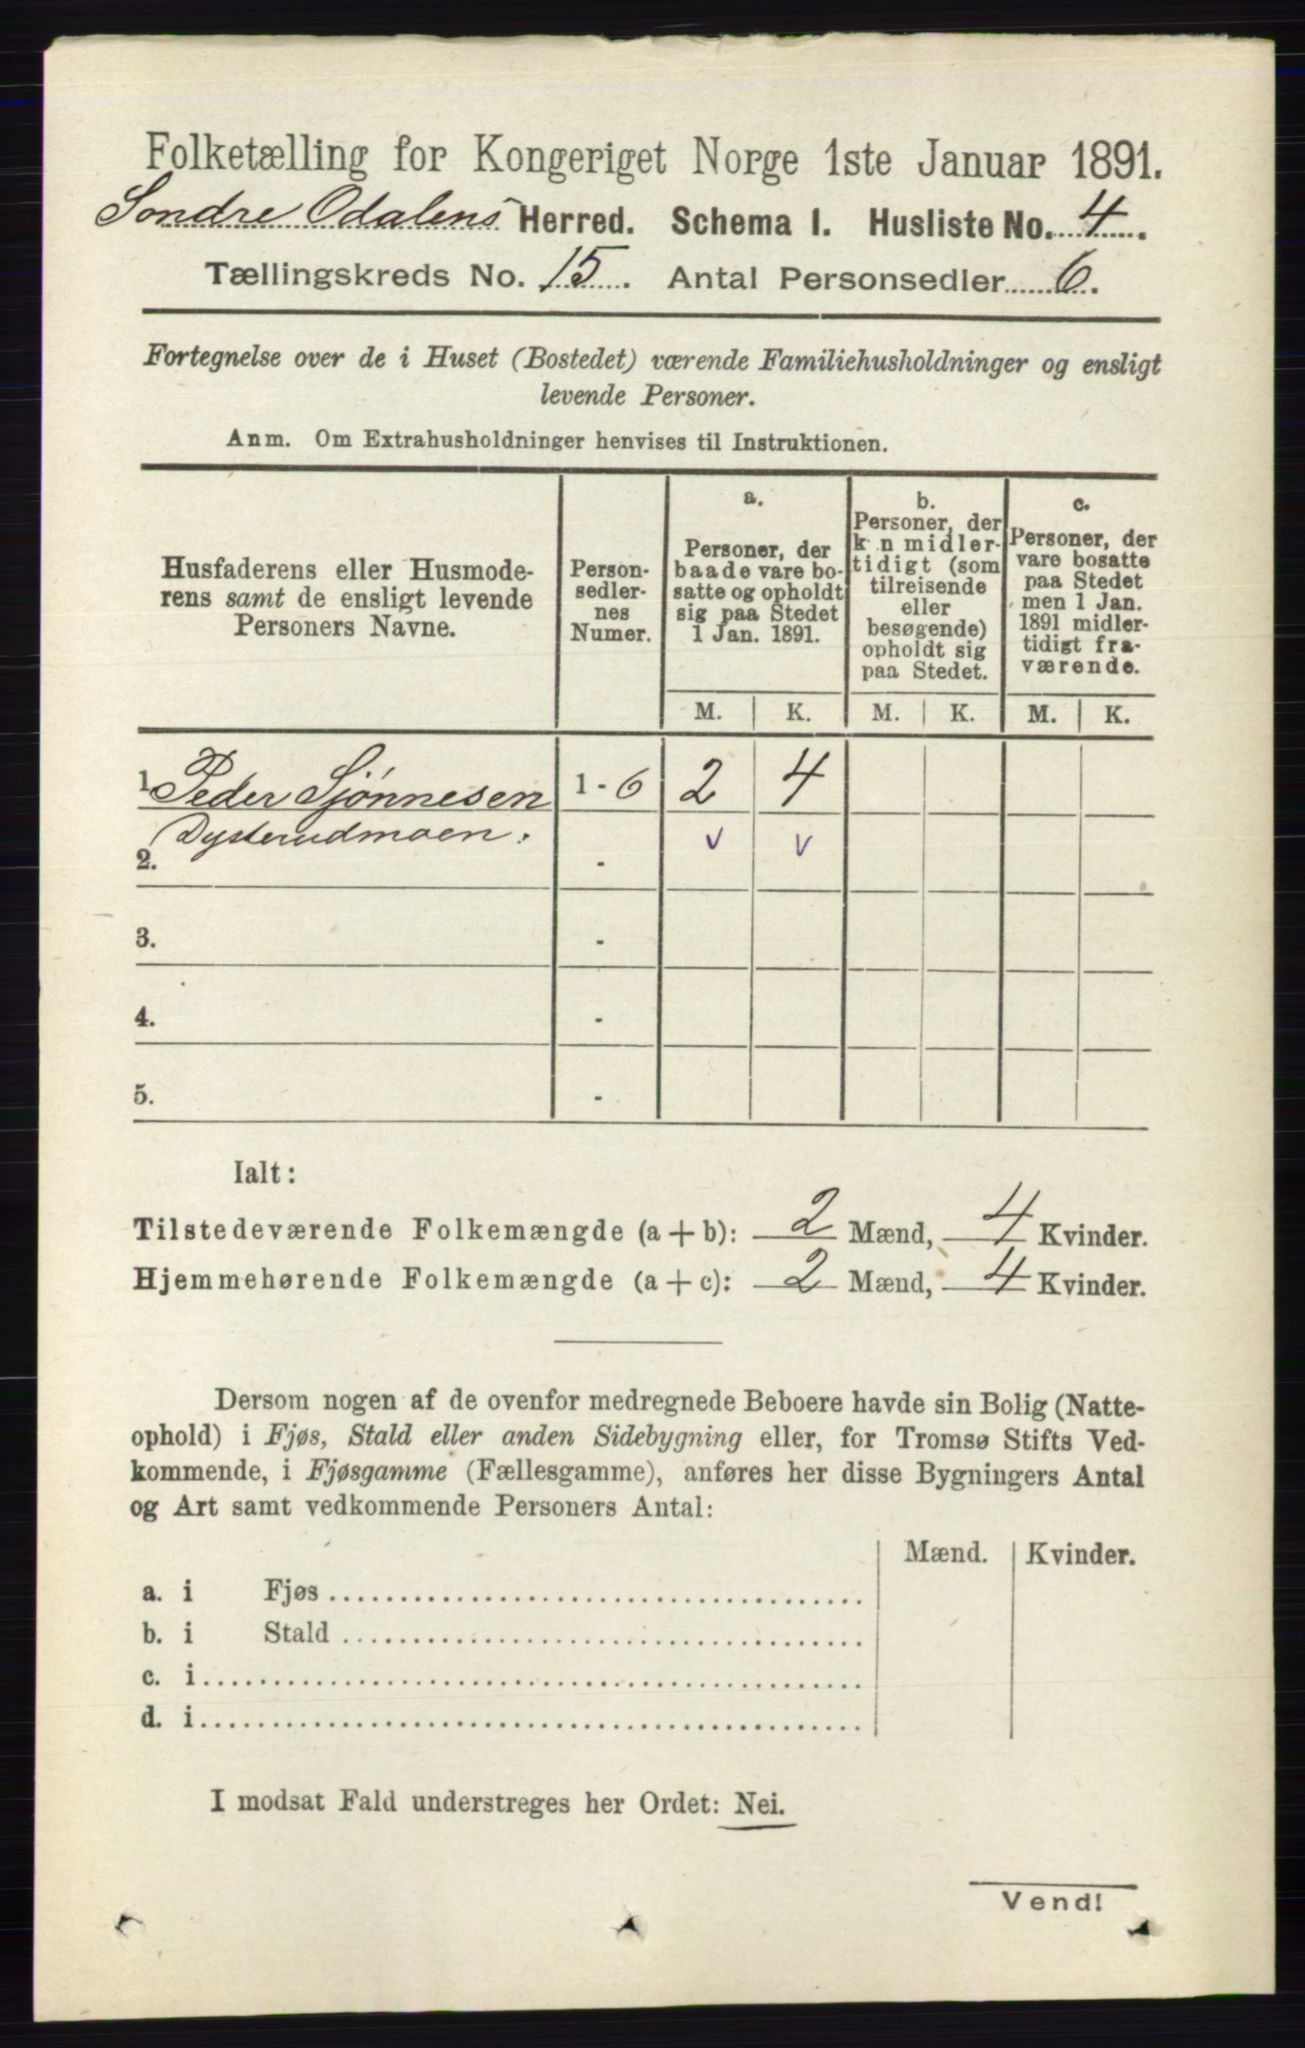 Folketælling for Kongeriget Norge 1ste Januar 1891.
Søndre Odalens Herred. Schema I. Husliste No. 4.
Tællingskreds No. 15. Antal Personsedler 6.
Fortegnelse over de i Huset (Bostedet) værende Familiehusholdninger og ensligt
levende Personer.
Anm. Om Extrahusholdninger henvises til Instruktionen.
Husfaderens eller Husmode-
rens samt de ensligt levende
Personers Navne.
Person-
sedler-
nes
Numer.
a.
Personer, der
baade vare bo-
satte og opholdt
sig paa Stedet
1 Jan. 1891.
b.
Personer, der
k n midler-
tidigt (som
tilreisende
eller
besøgende)
opholdt sig
paa Stedet.
c.
Personer, der
vare bosatte
paa Stedet
men 1 Jan.
1891 midler-
tidigt fra-
værende.
M. K. M. K. M. K.
1. Peder Sjønnesen 1 - 6 2 4
Dysterudmoen. v v
2. -
3. -
4. -
5. -
Ialt:
Tilstedeværende Folkemængde (a + b): 2 Mænd, 4 Kvinder.
Hjemmehørende Folkemængde (a + c): 2 Mænd, 4 Kvinder.
Dersom nogen af de ovenfor medregnede Beboere havde sin Bolig (Natte-
ophold) i Fjøs, Stald eller anden Sidebygning eller, for Tromsø Stifts Ved-
kommende, i Fjøsgamme (Fællesgamme), anføres her disse Bygningers Antal
og Art samt vedkommende Personers Antal:
Mænd. Kvinder.
a. i Fjøs
b. i Stald
c. i
d. i
I modsat Fald understreges her Ordet: Nei.
Vend!